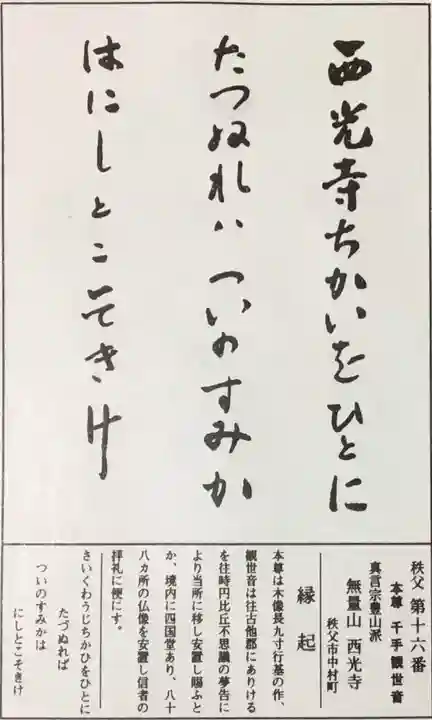 西光寺ちかいをひとに
たつぬれハついのすみか
はにしとこそきけ
秩父 第十六番
本尊 千手観世音
真言宗豊山派
無量山 西光寺
秩父市中村町
縁起
本尊は木像長九寸行基の作、
観世音は往古他郡にありける
を往時円比丘不思議の夢告に
より当所に移し安置し賜ふと
か、境内に四国堂あり、八十
八カ所の仏像を安置し信者の
拝礼に便にす。
さいくわうじちかひをひとに
たづぬれば
ついのすみかは
にしとこそきけ